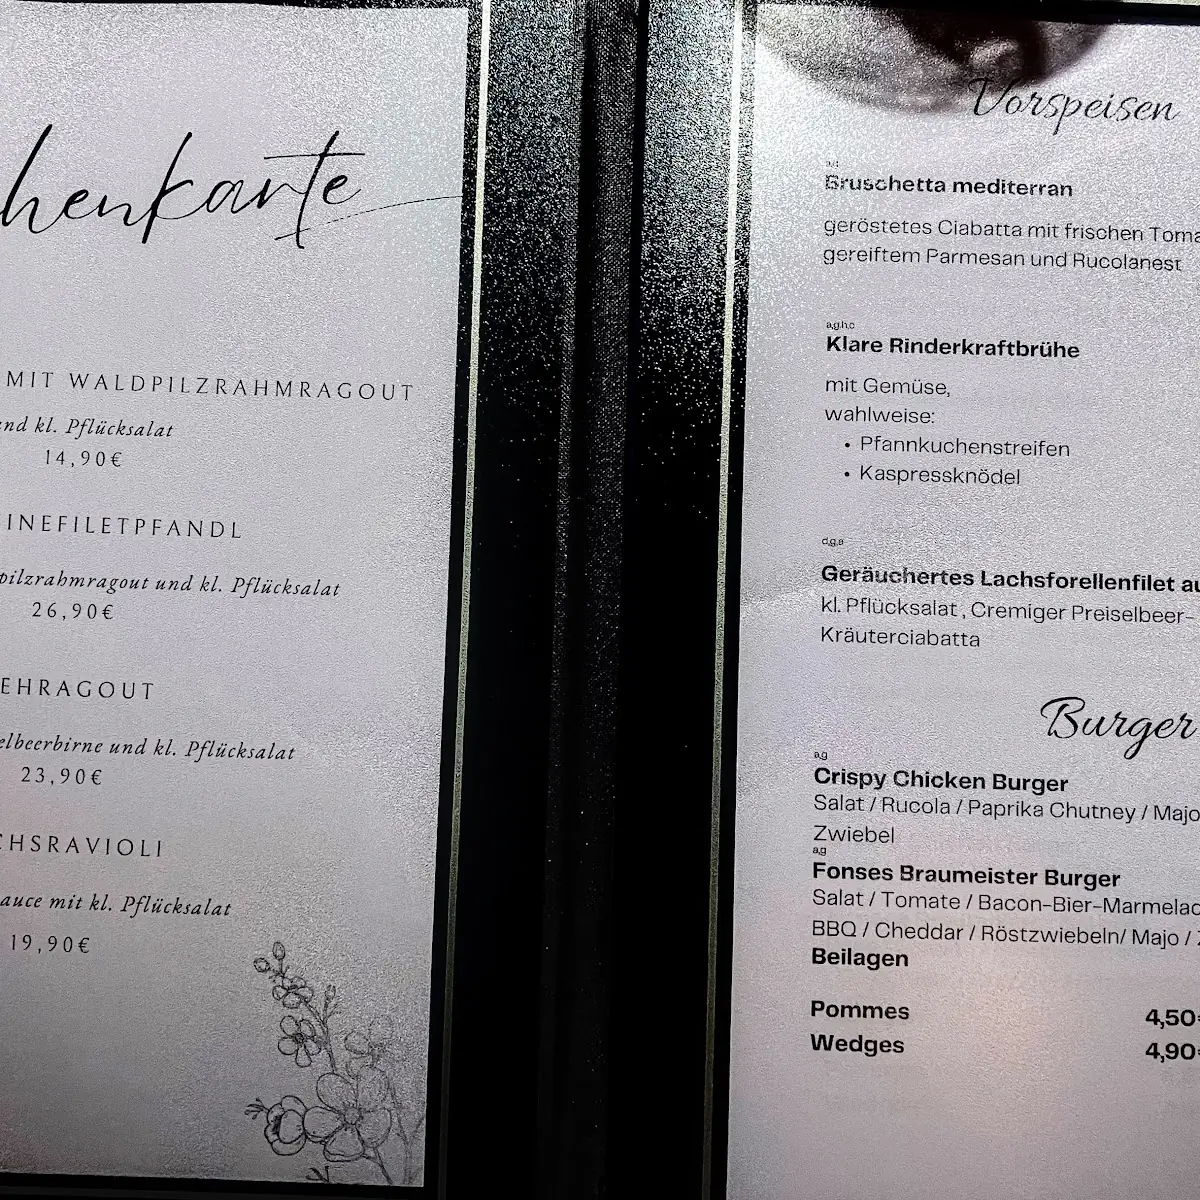 henkarte
MIT WALDPILZRAHMRAGOUT
nd kl. Pflücksalat
14,90€
INEFILETPFANDL
pilzrahmragout und kl. Pflücksalat
26,90€
EHRAGOUT
elbeerbirne und kl. Pflücksalat
23,90€
CHSRAVIOLI
auce mit kl. Pflücksalat
19,90€
Vorspeisen
Bruschetta mediterran
geröstetes Ciabatta mit frischen Toma
gereiftem Parmesan und Rucolanest
a,g,h,c
Klare Rinderkraftbrühe
mit Gemüse,
wahlweise:
• Pfannkuchenstreifen
• Kaspressknödel
d,g,a
Geräuchertes Lachsforellenfilet au
kl. Pflücksalat , Cremiger Preiselbeer-
Kräuterciabatta
Burger
a,g
Crispy Chicken Burger
Salat / Rucola / Paprika Chutney / Majo
Zwiebel
a,g
Fonses Braumeister Burger
Salat / Tomate / Bacon-Bier-Marmelad
BBQ / Cheddar / Röstzwiebeln/ Majo /
Beilagen
Pommes 4,50€
Wedges 4,90€